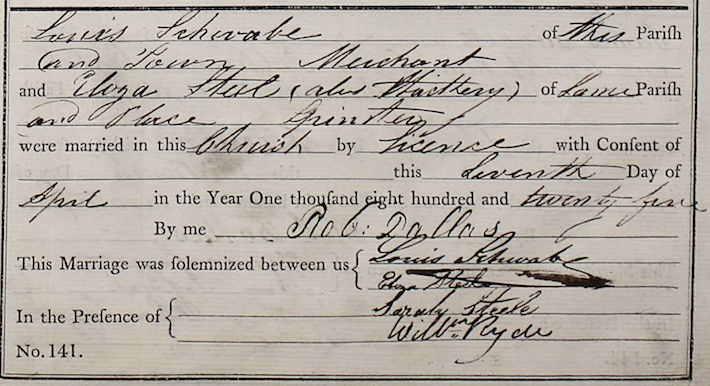 Louis Schwabe of this Pariſh
and Town Merchant
and Eliza Steel (alias Hattery) of Same Pariſh
and Place Spinster
were married in this Church by Licence with Conſent of
this Seventh Day of
April in the Year One thouſand eight hundred and twenty five
By me Rob: Dallas
This Marriage was ſolemnized between us { Louis Schwabe
Eliza Steele
In the Preſence of { Sarah Steele
Willm Ryde
No. 141.